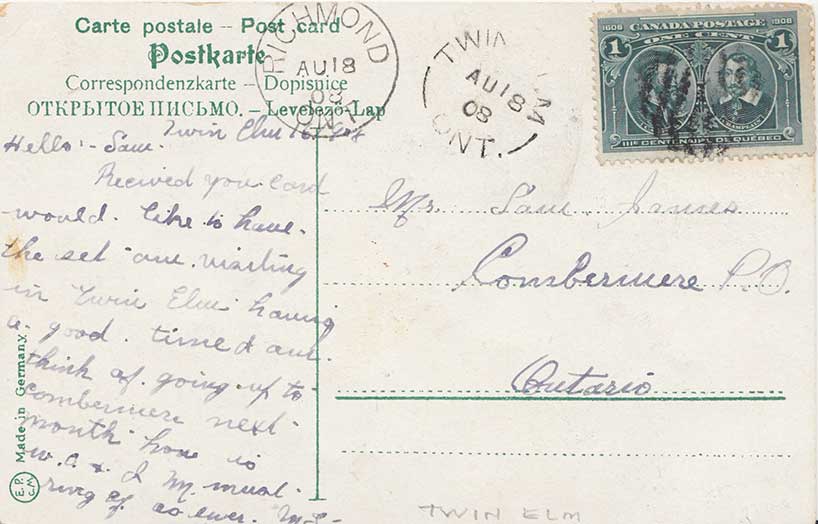 Carte postale – Post card
Postkarte
Correspondenzkarte – Dopisnice
ОТКРЫТОЕ ПИСЬМО. – Levelező-Lap
RICHMOND
AU 18
08
ONT.
TWIN ELM
AU 18
08
ONT.
1608 CANADA POSTAGE 1908
1 ONE CENT 1
CHAMPLAIN
IIIe CENTENAIRE DE QUEBEC
Twin Elm
Hello - Sam.
Recived you card
would. like to have.
the set am. visiting
in Twin Elm having
a. good. time & am.
think of. going. up to
combermere next.
month how is
Mr. Sam James
Combermere P.O.
Ontario
Made in Germany
E.P.
C.M
TWIN ELM